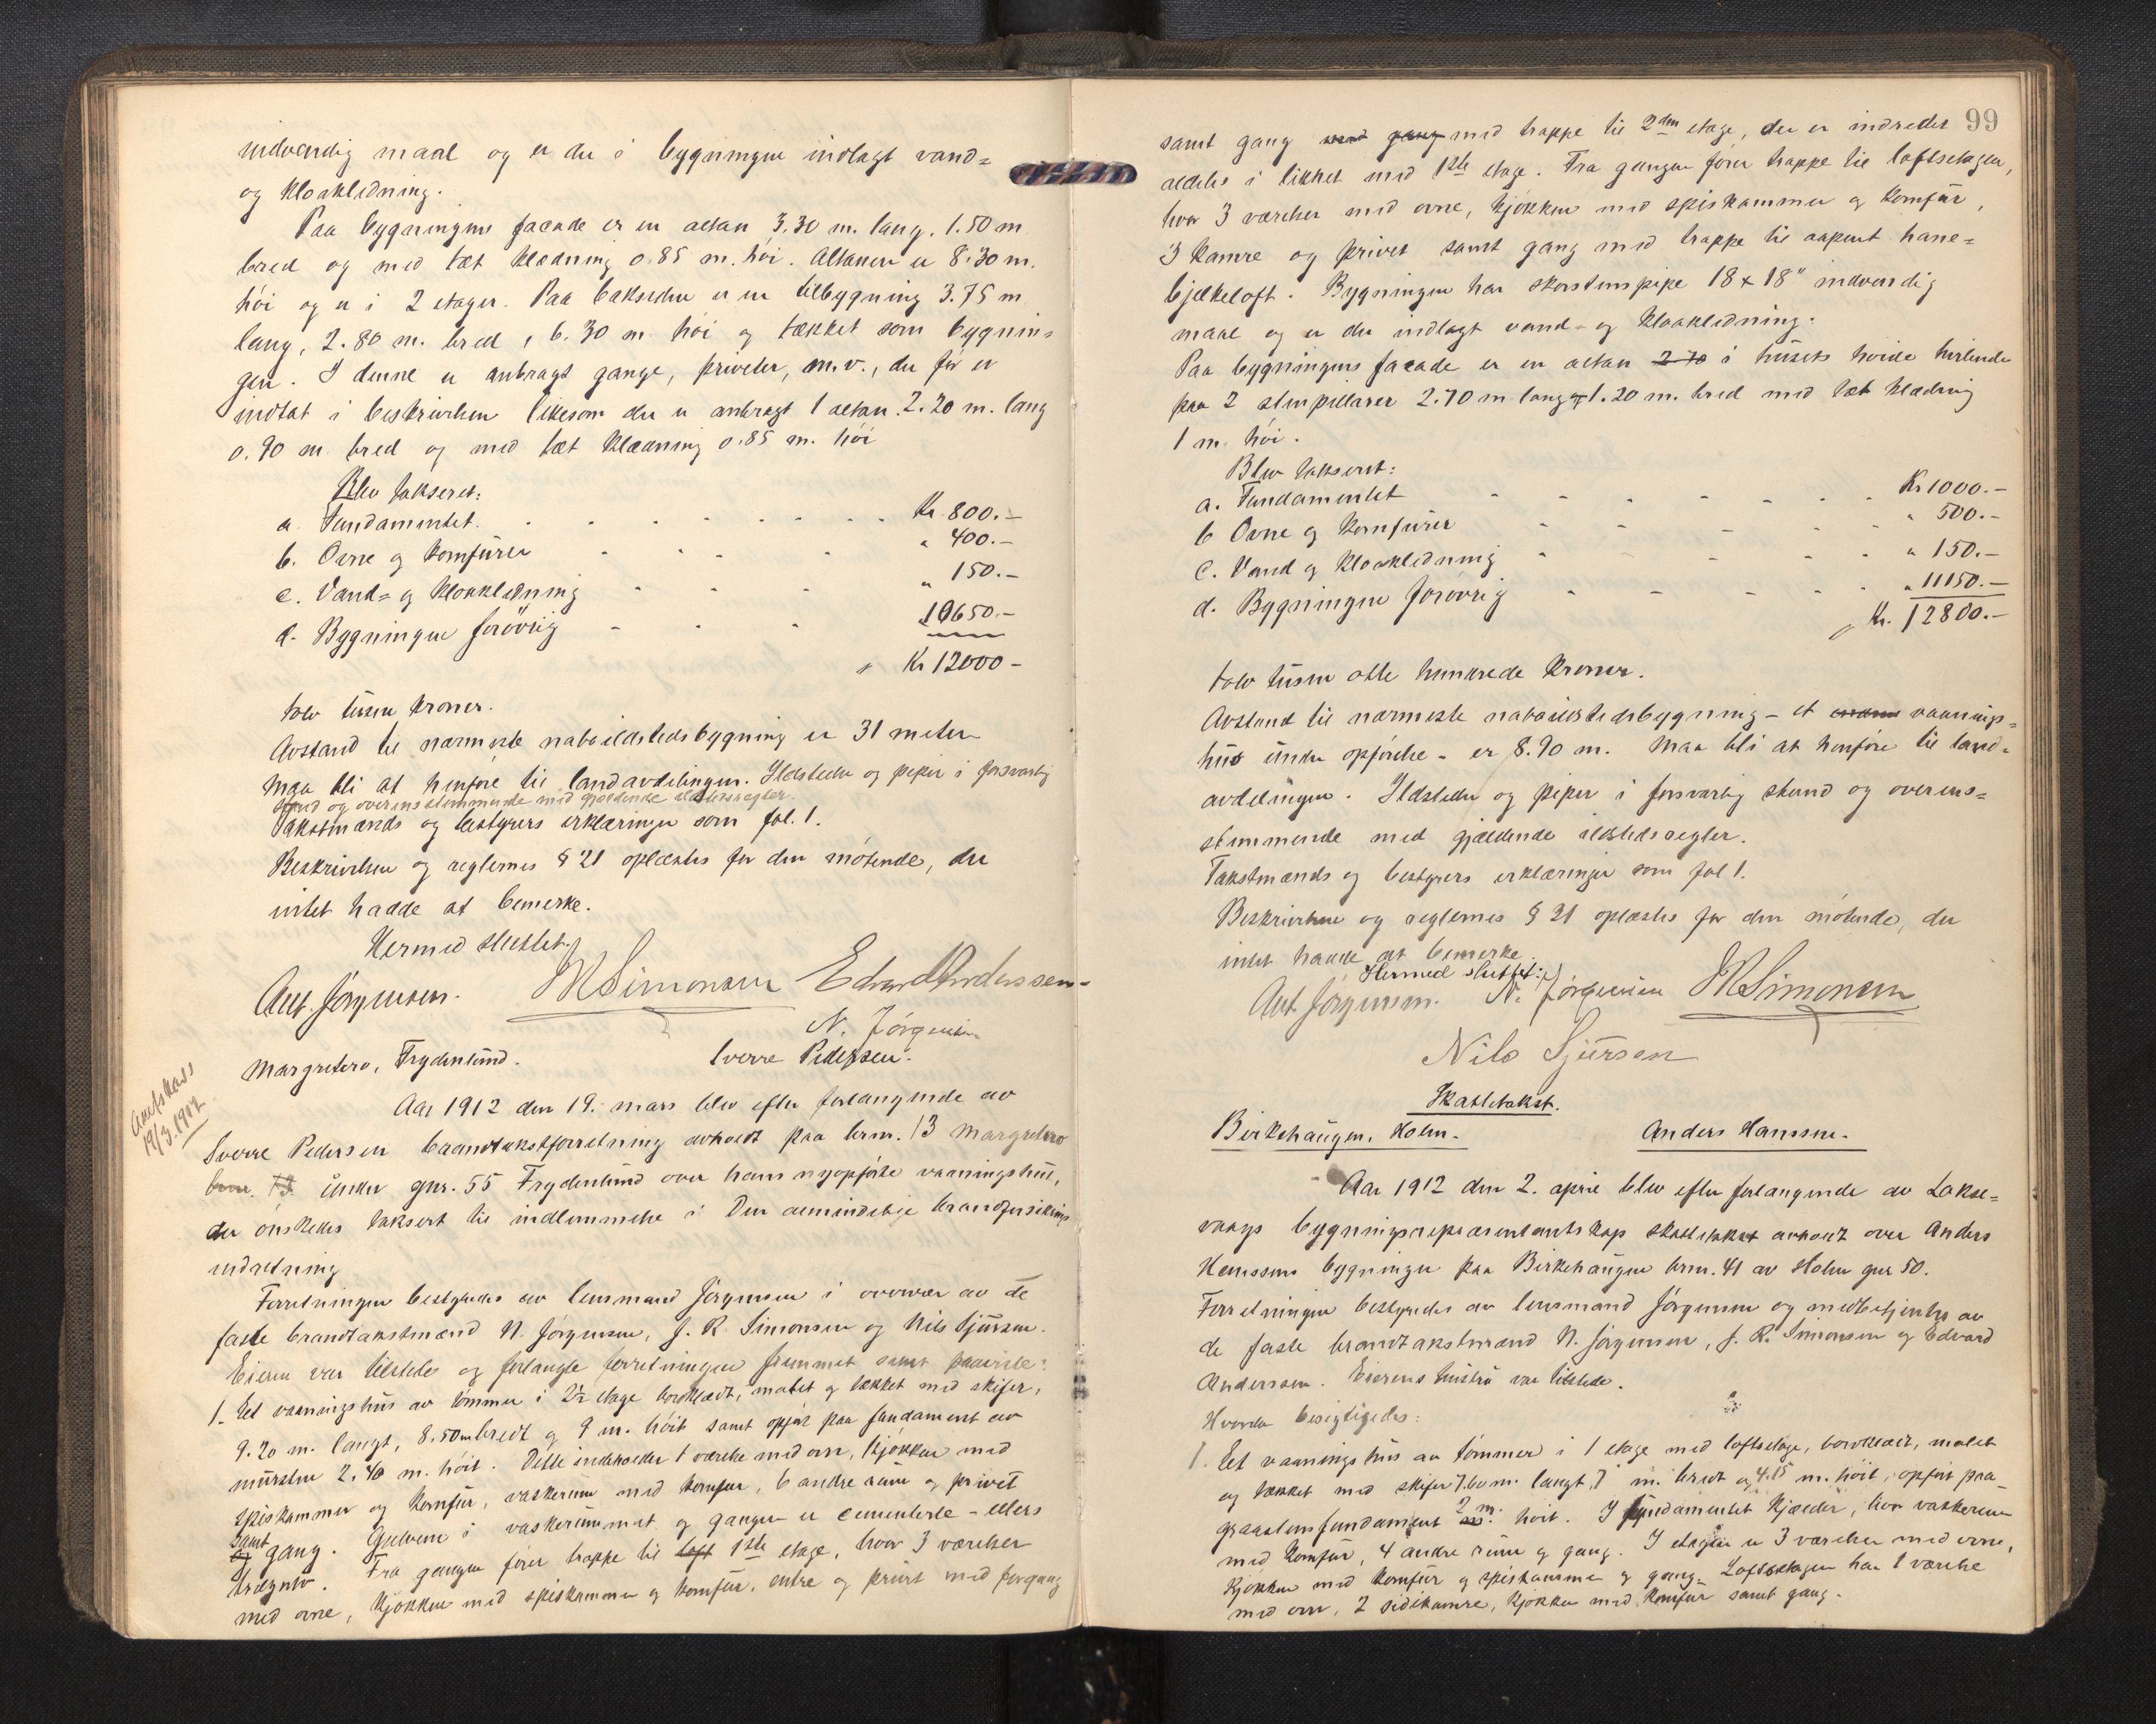 indvendig maal og er der i bygningen indlagt vand=
og kloakledning.
Paa bygningens facade er en altan 3.30 m. lang, 1.50 m
bred og med tæt klædning 0.85 m. høi. Altanen er 8.30 m.
høi og er i 2 etager. Paa baksiden er en tilbygning 3.75 m
lang, 2.80 m. bred, 6.30 m høi og tækket som bygnin=
gen. I denne er anbragt gange, priveter, m.v., der før er
indtat i beskrivelsen likesom der er anbragt 1 altan 2.20 m. lang
0.90 m bred og med tæt klædning 0.85 m. høi
Blev takseret:
a. Fundamentet. Kr 800.–
b. Ovne og komfurer " 400.–
c. Vand= og kloakledning " 150.–
d. Bygningen forøvrig 10650.–
Kr 12000–
tolv tusen kroner.
Avstand til nærmeste naboildstedsbygning er 31 meter
Maa bli at henføre til landavdelingen. Ildsteder og piper i forsvarlig
stand og overensstemmende med gjældende ildstedsregler.
Takstmænds og bestyrers erklæringer som fol. 1.
Beskrivelsen og reglernes § 21 oplæstes for den møtende, der
intet hadde at bemerke.
Hermed sluttet.
Ant. Jørgensen. J R Simonsen Edvard Anderssen
N. Jørgensen
Margretero, Frydenlund. Sverre Pedersen.
Amtskass
19/3.1912
Aar 1912 den 19. mars blev efter forlangende av
Sverre Pedersen brandtakstforretning avholdt paa brn. 13 Margretero
brn. 13 under gnr. 55 Frydenlund over hans nyopførte vaaningshus,
der ønskedes taksert til indlemmelse i Den almindelige brandforsikrings
indretning
Forretningen bestyredes av lensmand Jørgensen i overvær av de
faste brandtakstmænd N. Jørgensen, J. R. Simonsen og Nils Sjursen.
Eieren var tilstede og forlangte forretningen fremmet samt paaviste:
1. Et vaaningshus av tømmer i 2½ etage bordklædt, malet og tækket med skifer,
9.20 m. langt, 8.50 m bredt og 9 m. høit samt opført paa fundament av
mursten 2.40 m. høit. Dette indeholder 1 værelse med ovn, kjøkken med
spiskammer og komfur, vaskerum med komfur, 6 andre rum og privet
samt
og gang. Gulvene i vaskerummet og gangen er cementerte – ellers
trægulv. Fra gangen fører trappe til loft 1ste etage, hvor 3 værelser
med ovne, kjøkken med spiskammer og komfur, entre og privet med forgang
99
samt gang med gang med trappe til 2den etage, der er indredet
aldeles i likhet med 1ste etage. Fra gangen fører trappe til loftsetagen,
hvor 3 værelser med ovne, kjøkken med spiskammer og komfur,
3 kamre og privet samt gang med trappe til aapent hane=
bjelkeloft. Bygningen har skorstenspipe 18 x 18" indvendig
maal og er der indlagt vand- og kloakledning.
Paa bygningens facade er en altan 2.70 i husets høide hvilende
paa 2 stenpillarer 2.70 m lang og 1.20 m. bred med tæt klædning
1 m. høi.
Blev takseret:
a. Fundamentet Kr 1000.–
b Ovne og komfurer " 500.–
c. Vand og kloakledning " 150.–
d. Bygningen forøvrig " 11150.–
Kr. 12800.–
tolv tusen otte hundrede kroner.
Avstand til nærmeste naboildstedsbygning – et vaanings=
hus under opførelse – er 8.90 m. Maa bli at henføre til land=
avdelingen. Ildsteder og piper i forsvarlig stand og overens=
stemmende med gjældende ildstedsregler.
Takstmænds og bestyrers erklæringer som fol 1.
Beskrivelsen og reglernes § 21 oplæstes for den møtende, der
intet hadde at bemerke
Hermed sluttet:
Ant Jørgensen. N. Jørgensen J R Simonsen
Nils Sjursen
Skattetakst.
Birkehaugen, Holm. Anders Hanssen.
Aar 1912 den 2. april blev efter forlangende av Lakse=
vaags bygningsrepræsentantskap skattetakst avholdt over Anders
Hanssens bygninger paa Birkehaugen brn. 41 av Holm gnr 50.
Forretningen bestyredes av lensmand Jørgensen og medbetjentes av
de faste brandtakstmænd N. Jørgensen, J. R. Simonsen og Edvard
Anderssen. Eierens hustru var tilstede.
Hvorda besigtigedes:
1. Et vaaningshus av tømmer i 1 etage med loftsetage, bordklædt, malet
og tækket med skifer 7.60 m. langt, 7 m. bredt og 4.15 m. høit, opført paa
graastensfundament 2 m. høit. I fundamentet kjælder, hvor vaskerum
med komfur, 4 andre rum og gang. I etagen er 3 værelser med ovne,
kjøkken med komfur og spiskammer og gang. Loftsetagen har 1 værelse
med ovn, 2 sidekamre, kjøkken med komfur samt gang.